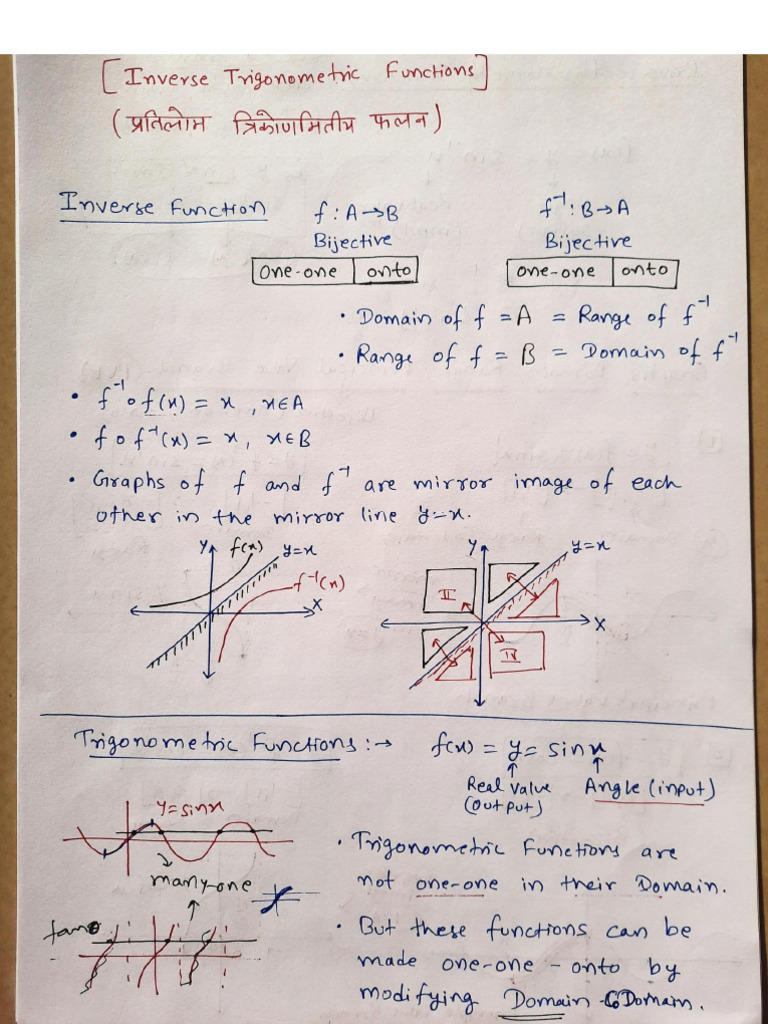 [Inverse Trigonometric Functions]
(प्रतिलोम त्रिकोणमितीय फलन)
Inverse Function f : A→B f⁻¹ : B→A
Bijective Bijective
one-one onto one-one onto
• Domain of f = A = Range of f⁻¹
• Range of f = B = Domain of f⁻¹
• f⁻¹∘f(x) = x , x∈A
• f∘f⁻¹(x) = x, x∈B
• Graphs of f and f⁻¹ are mirror image of each
other in the mirror line y=x.
y f(x) y=x
f⁻¹(x)
X
y y=x
II
X
IV
Trigonometric Functions :→ f(x) = y = sinx
Real value Angle (input)
(output)
y=sinx
many-one
tanθ
• Trigonometric Functions are
not one-one in their Domain.
• But these functions can be
made one-one - onto by
modifying Domain - CoDomain.